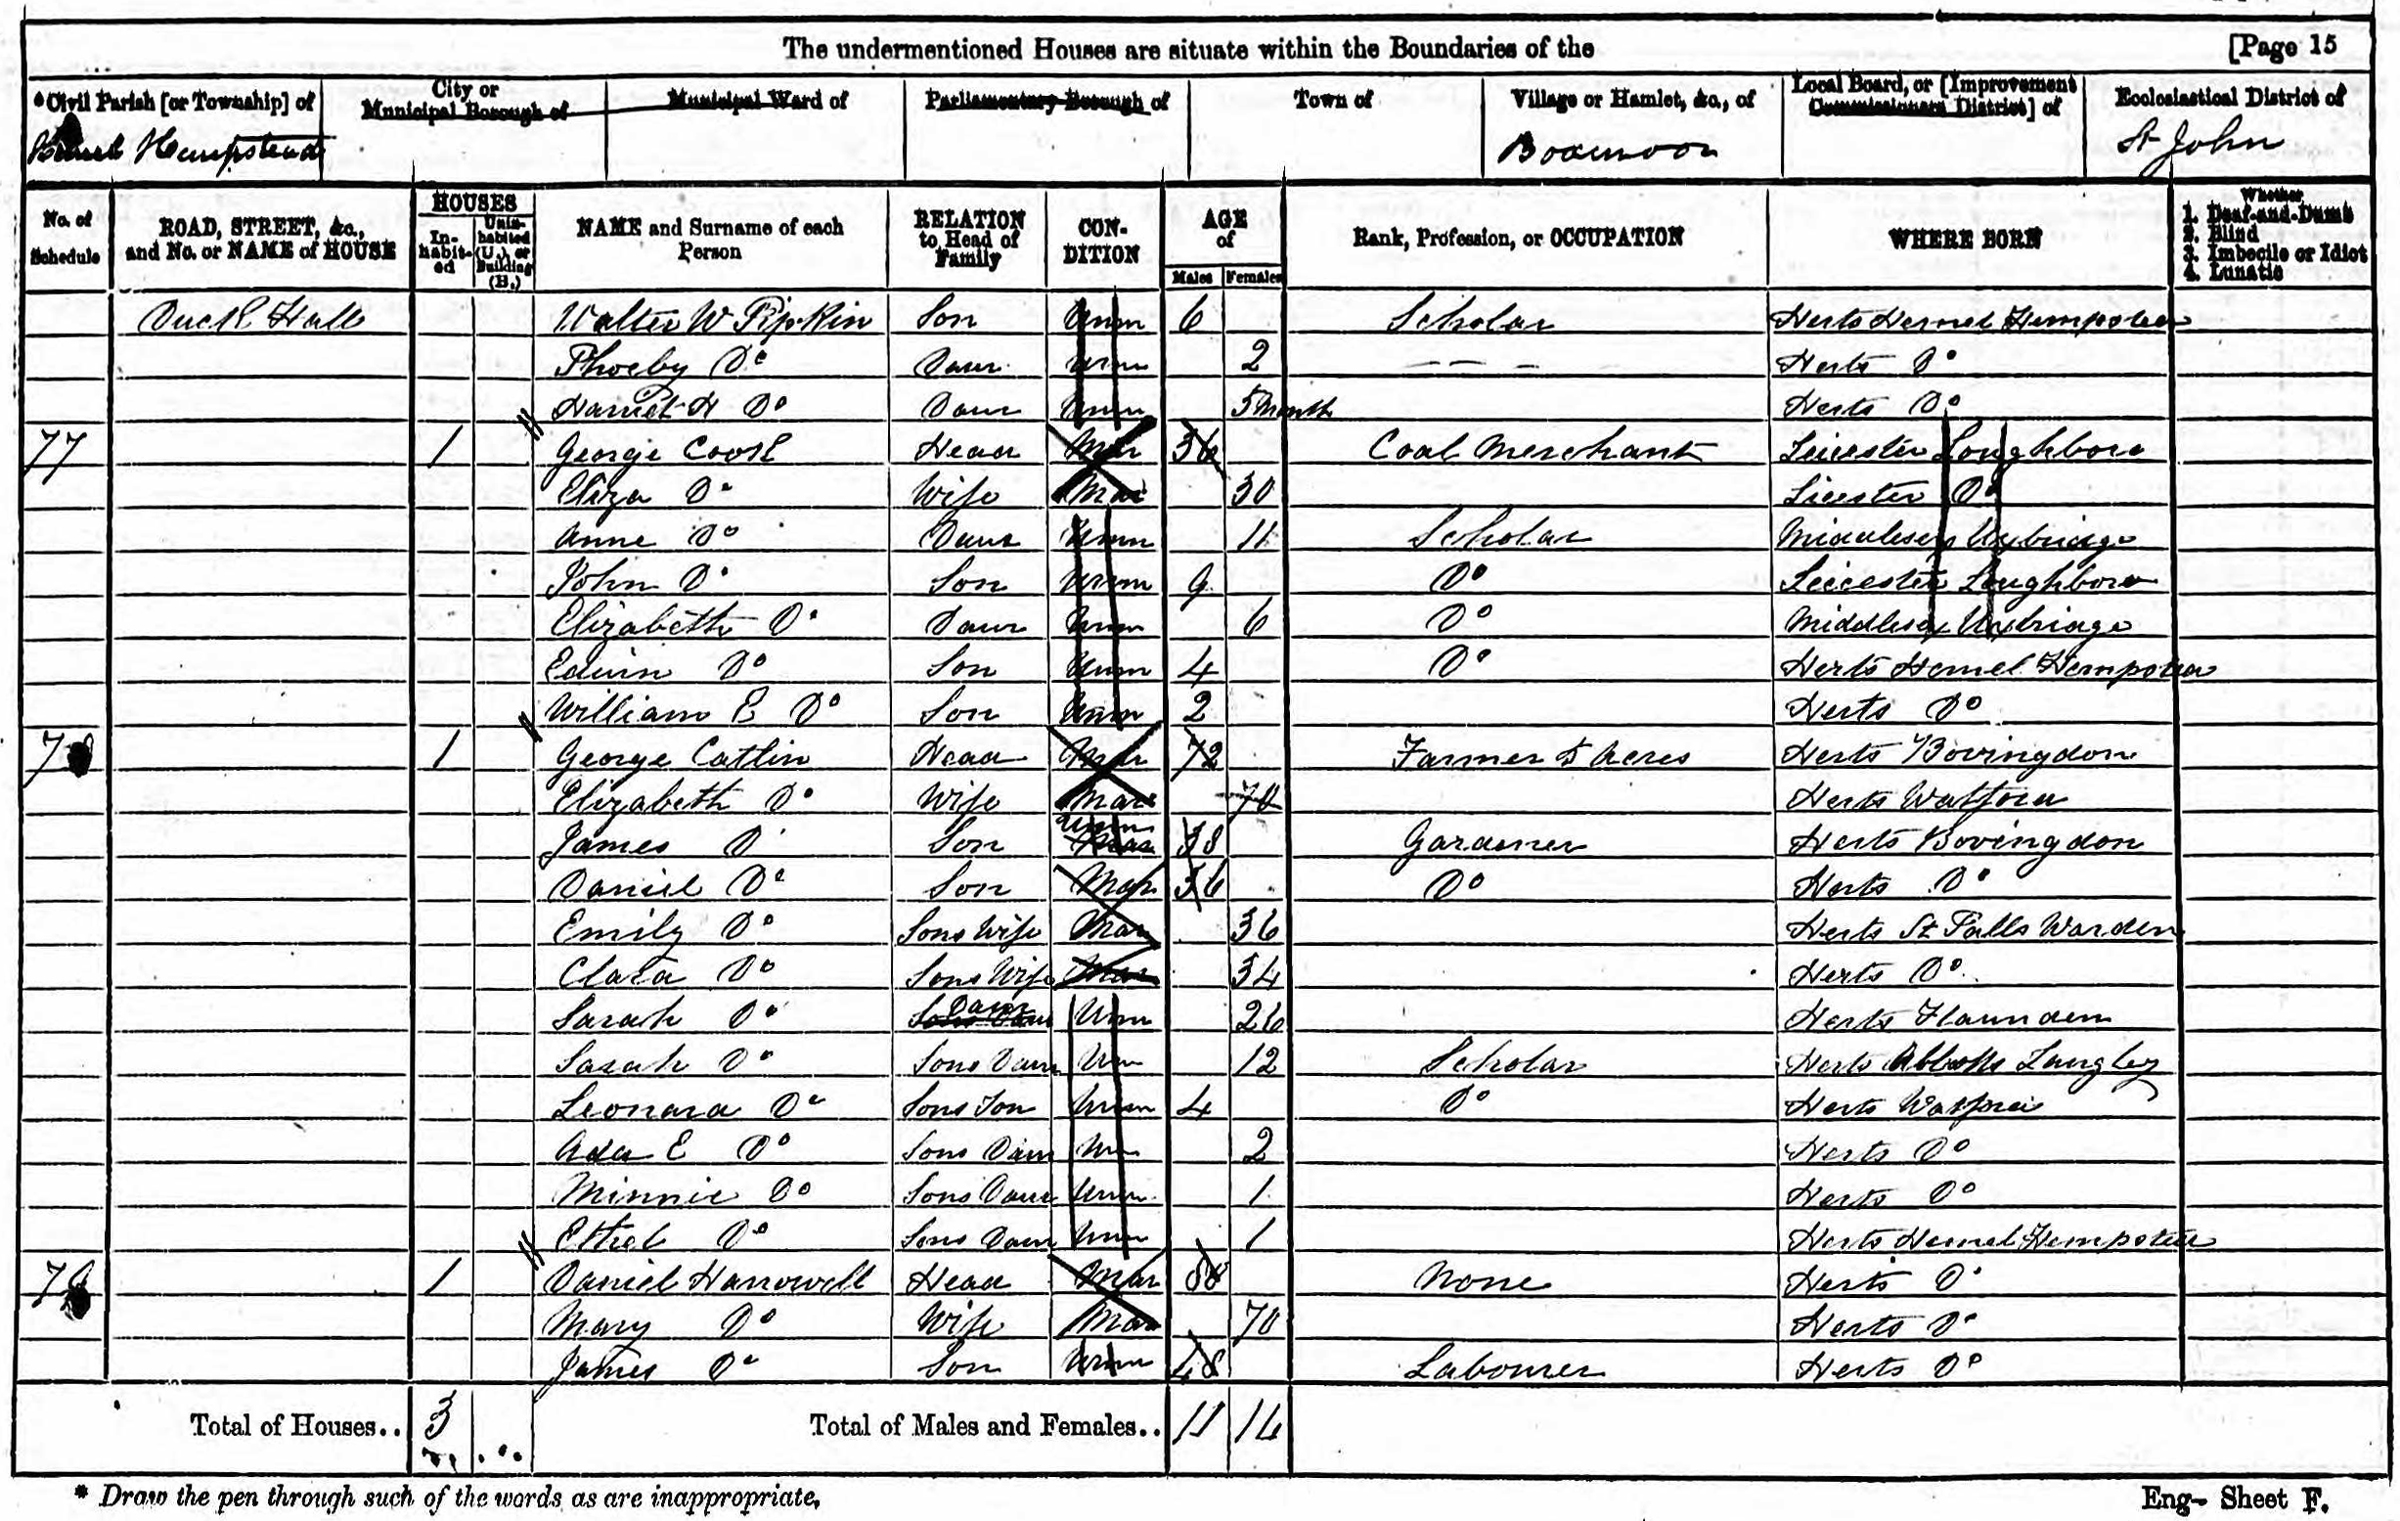 The undermentioned Houses are situate within the Boundaries of the [Page 15
*Civil Parish [or Township] of City or Municipal Borough of Municipal Ward of Parliamentary Borough of Town of Village or Hamlet, &c., of Local Board, or [Improvement Commissioners District] of Ecclesiastical District of
Hemel Hempstead Boxmoor St John
No. of Schedule ROAD, STREET, &c., and No. or NAME of HOUSE HOUSES In-habit-ed Unin-habited (U.), or Building (B.) NAME and Surname of each Person RELATION to Head of Family CON-DITION AGE of Males Females Rank, Profession, or OCCUPATION WHERE BORN Whether 1. Deaf-and-Dumb 2. Blind 3. Imbecile or Idiot 4. Lunatic
Duck Hall Walter W Pipkin Son Unm 6 Scholar Herts Hemel Hempstead
Phoeby Do Daur Unm 2 — — — Herts Do
Harriet H Do Daur Unm 5 Month Herts Do
77 1 George Cook Head Mar 36 Coal Merchant Leicester Loughboro
Eliza Do Wife Mar 30 Liester Do
Anne Do Daur Unm 11 Scholar Middlesex Uxbridge
John Do Son Unm 9 Do Leicester Loughboro
Elizabeth Do Daur Unm 6 Do Middlesex Uxbridge
Edwin Do Son Unm 4 Do Herts Hemel Hempstead
William E Do Son Unm 2 Herts Do
78 1 George Catlin Head Mar 72 Farmer 5 Acres Herts Bovingdon
Elizabeth Do Wife Mar 70 Herts Watford
James D Son Unm 38 Gardener Herts Bovingdon
Daniel Do Son Mar 36 Do Herts Do
Emily Do Sons Wife Mar 36 Herts St Palls Warden
Clara Do Sons Wife Mar 34 Herts Do
Sarah Do Daur Unm 26 Herts Flaunden
Sarah Do Sons Daur Unm 12 Scholar Herts Abbotts Langley
Leonard Do Sons Son Unm 4 Do Herts Watford
Ada E Do Sons Daur Unm 2 Herts Do
Minnie Do Sons Daur Unm 1 Herts Do
Ethel Do Sons Daur Unm 1 Herts Hemel Hempstead
79 1 Daniel Harrowell Head Mar None Herts Do
Mary Do Wife Mar 70 Herts Do
James Do Son Unm 48 Labourer Herts Do
Total of Houses.. 3 Total of Males and Females.. 11 14
* Draw the pen through such of the words as are inappropriate. Eng- Sheet F.